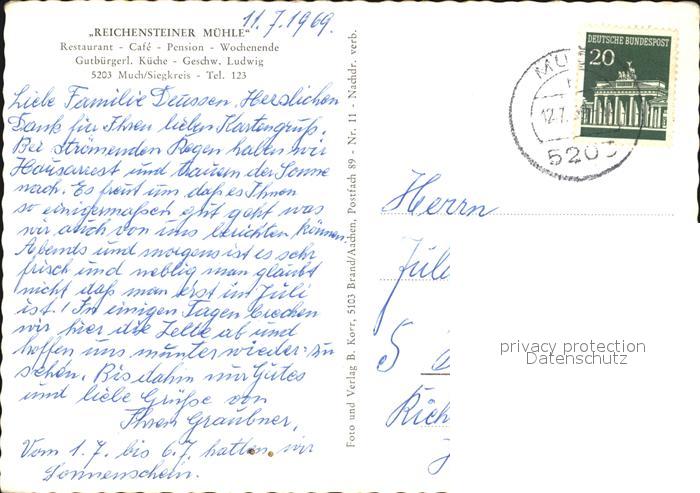 11.7.1969.
„REICHENSTEINER MÜHLE"
Restaurant - Café - Pension - Wochenende
Gutbürgerl. Küche - Geschw. Ludwig
5203 Much/Siegkreis - Tel. 123
Liebe Familie Deussen. Herzlichen
Dank für Ihren lieben Kartengruß.
Bei Strömenden Regen haben wir
Hausarrest und trauern der Sonne
nach. Es freut uns daß es Ihnen
so einigermaßen gut geht was
wir auch von uns berichten können.
Abends und morgens ist es sehr
frisch und neblig man glaubt
nicht daß man erst im Juli
ist! In einigen Tagen brechen
wir hier die Zelte ab und
hoffen uns munter wieder- zu
sehen. Bis dahin nur Gutes
und liebe Grüße von
Ihren Graubner.
Vom 1.7. bis 6.7. hatten wir
Sonnenschein.
Foto und Verlag B. Korr, 5103 Brand/Aachen, Postfach 89 - Nr. 11 - Nachdr. verb.
DEUTSCHE BUNDESPOST
20
MUCH
12.7.
5203
Herrn
Jul
5
Rich
privacy protection
Datenschutz